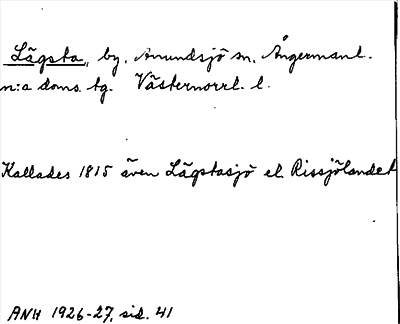 Lägsta, by, Anundsjö sn. Ångermanl.
n:a doms. tg. Västernorrl. l.
Kallades 1815 även Lägstasjö el. Rissjölandet
ANH 1926-27, sid. 41